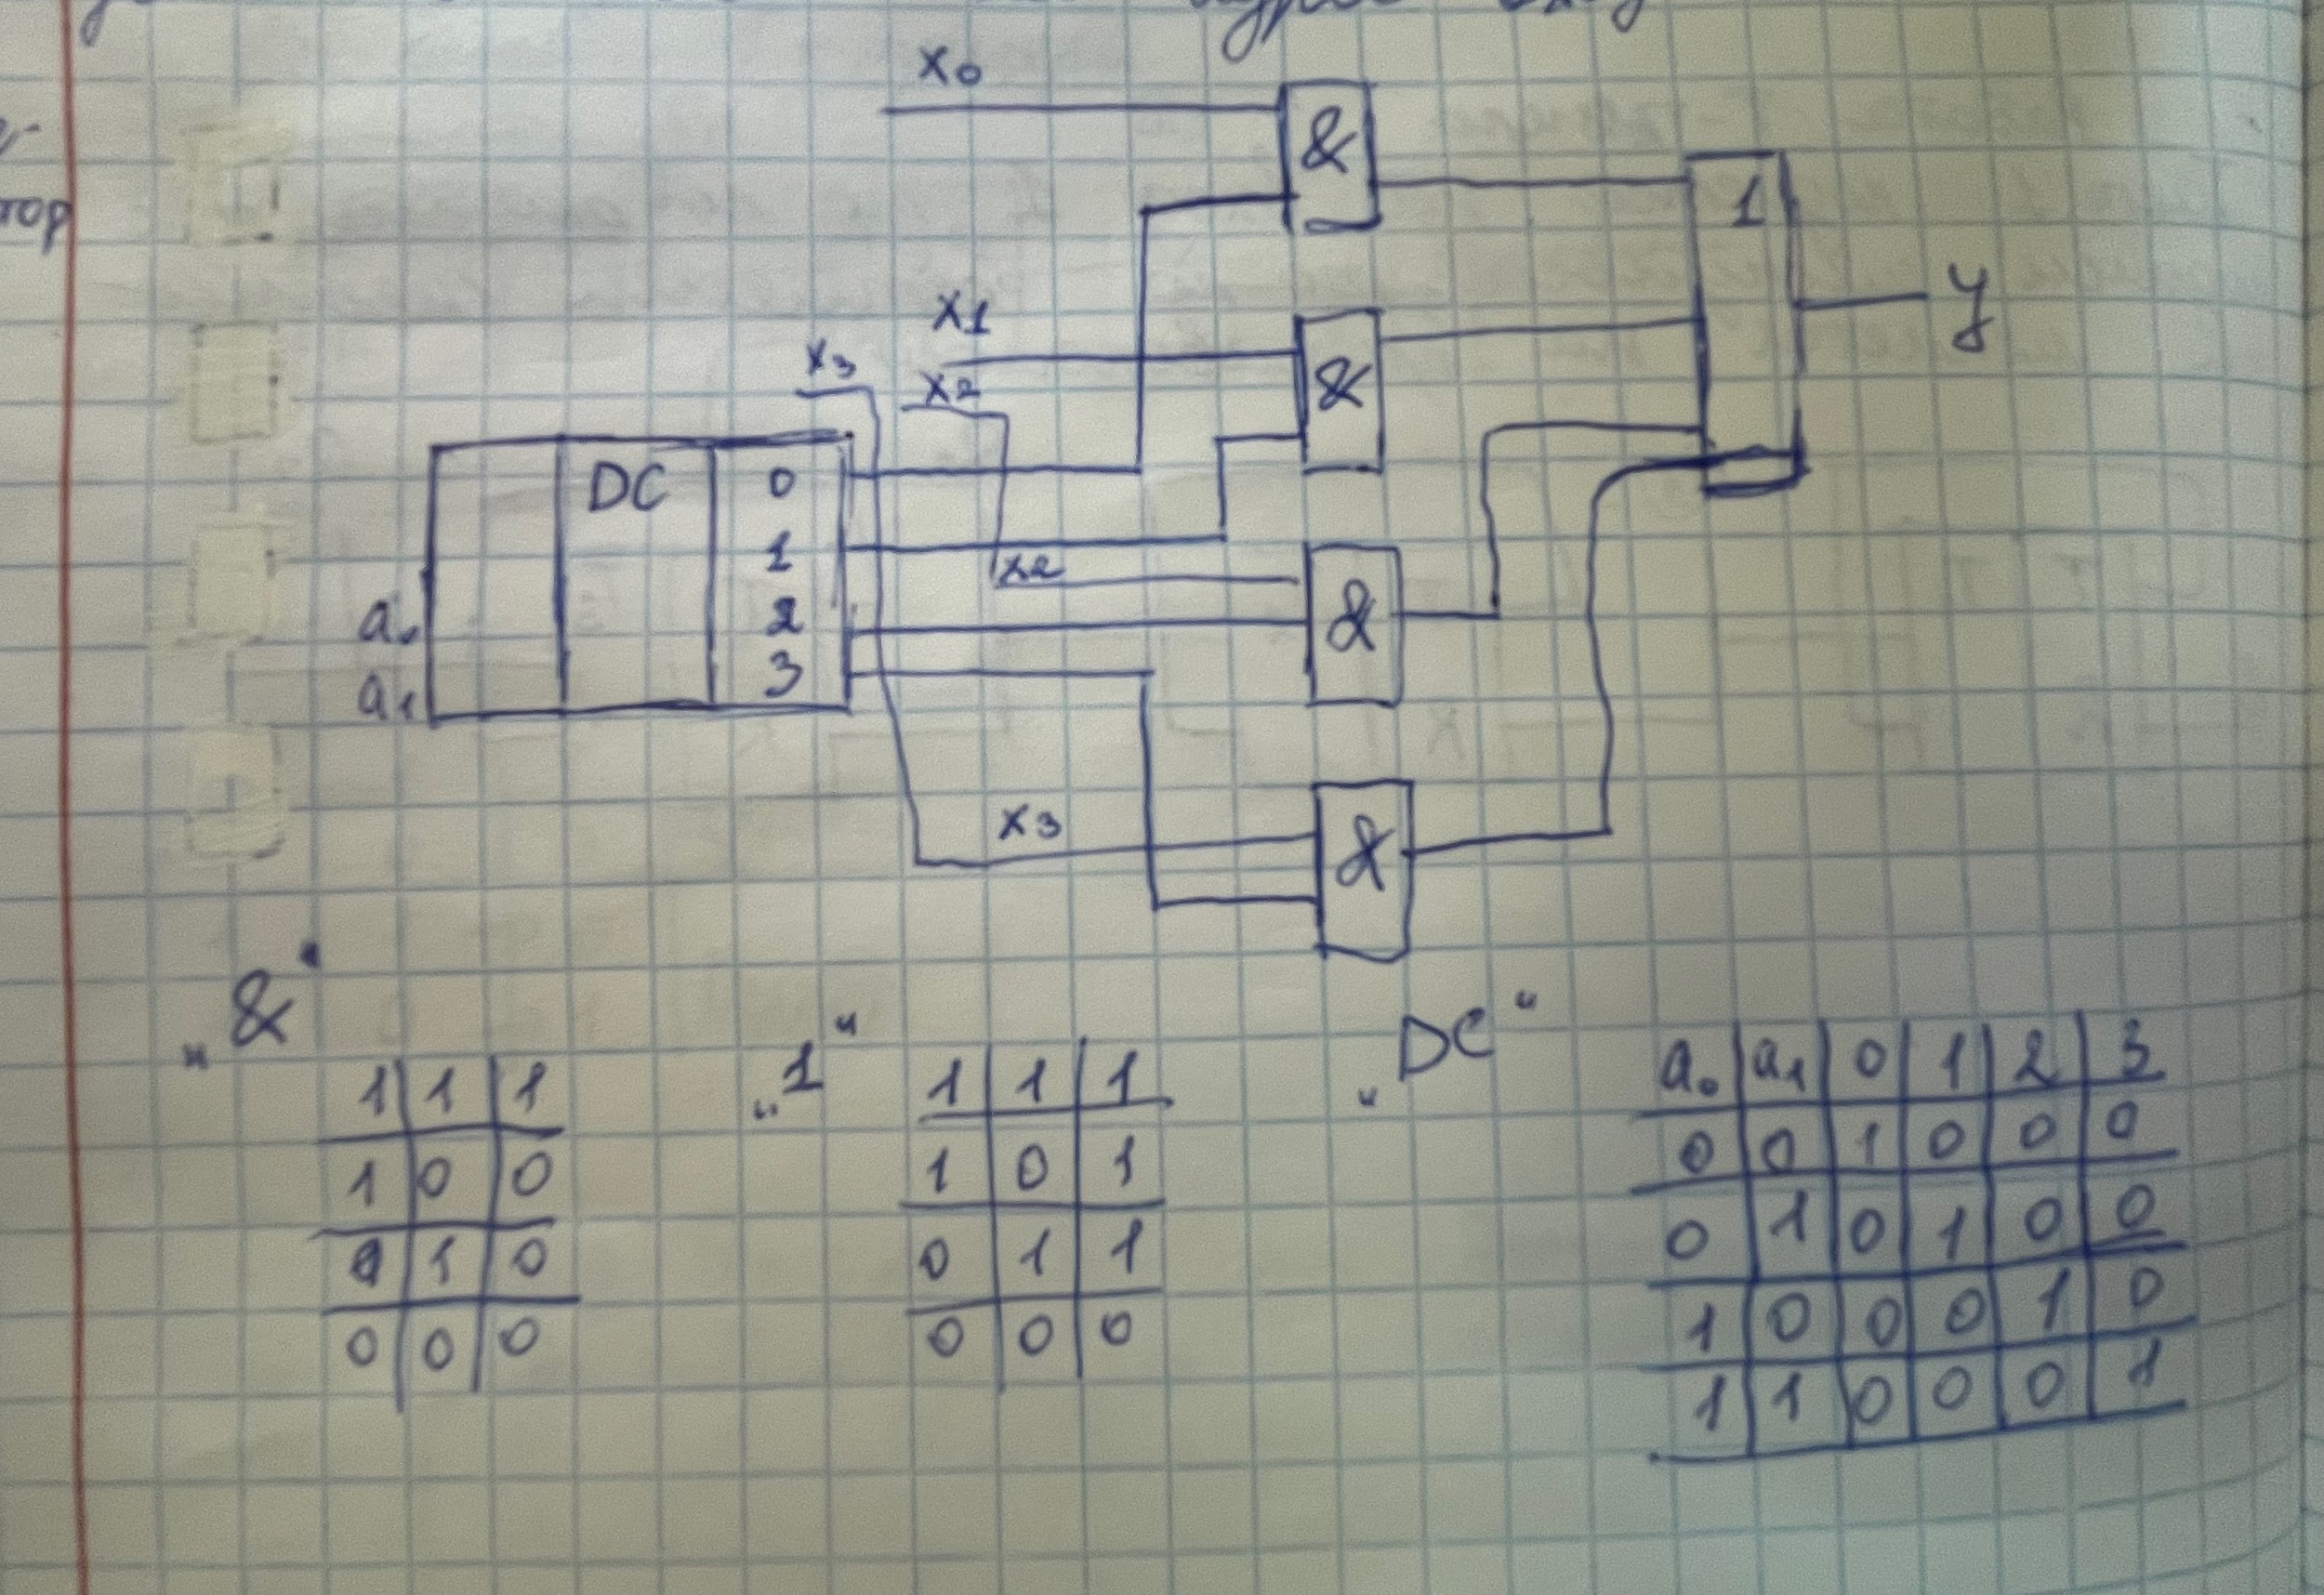 x0
&
1
x1
&
y
x3
x2
DC 0
1
x2
2
&
a0
3
a1
x3
&
„&“
1 1 1
1 0 0
0 1 0
0 0 0
„1“
1 1 1
1 0 1
0 1 1
0 0 0
„DC“
a0 a1 0 1 2 3
0 0 1 0 0 0
0 1 0 1 0 0
1 0 0 0 1 0
1 1 0 0 0 1